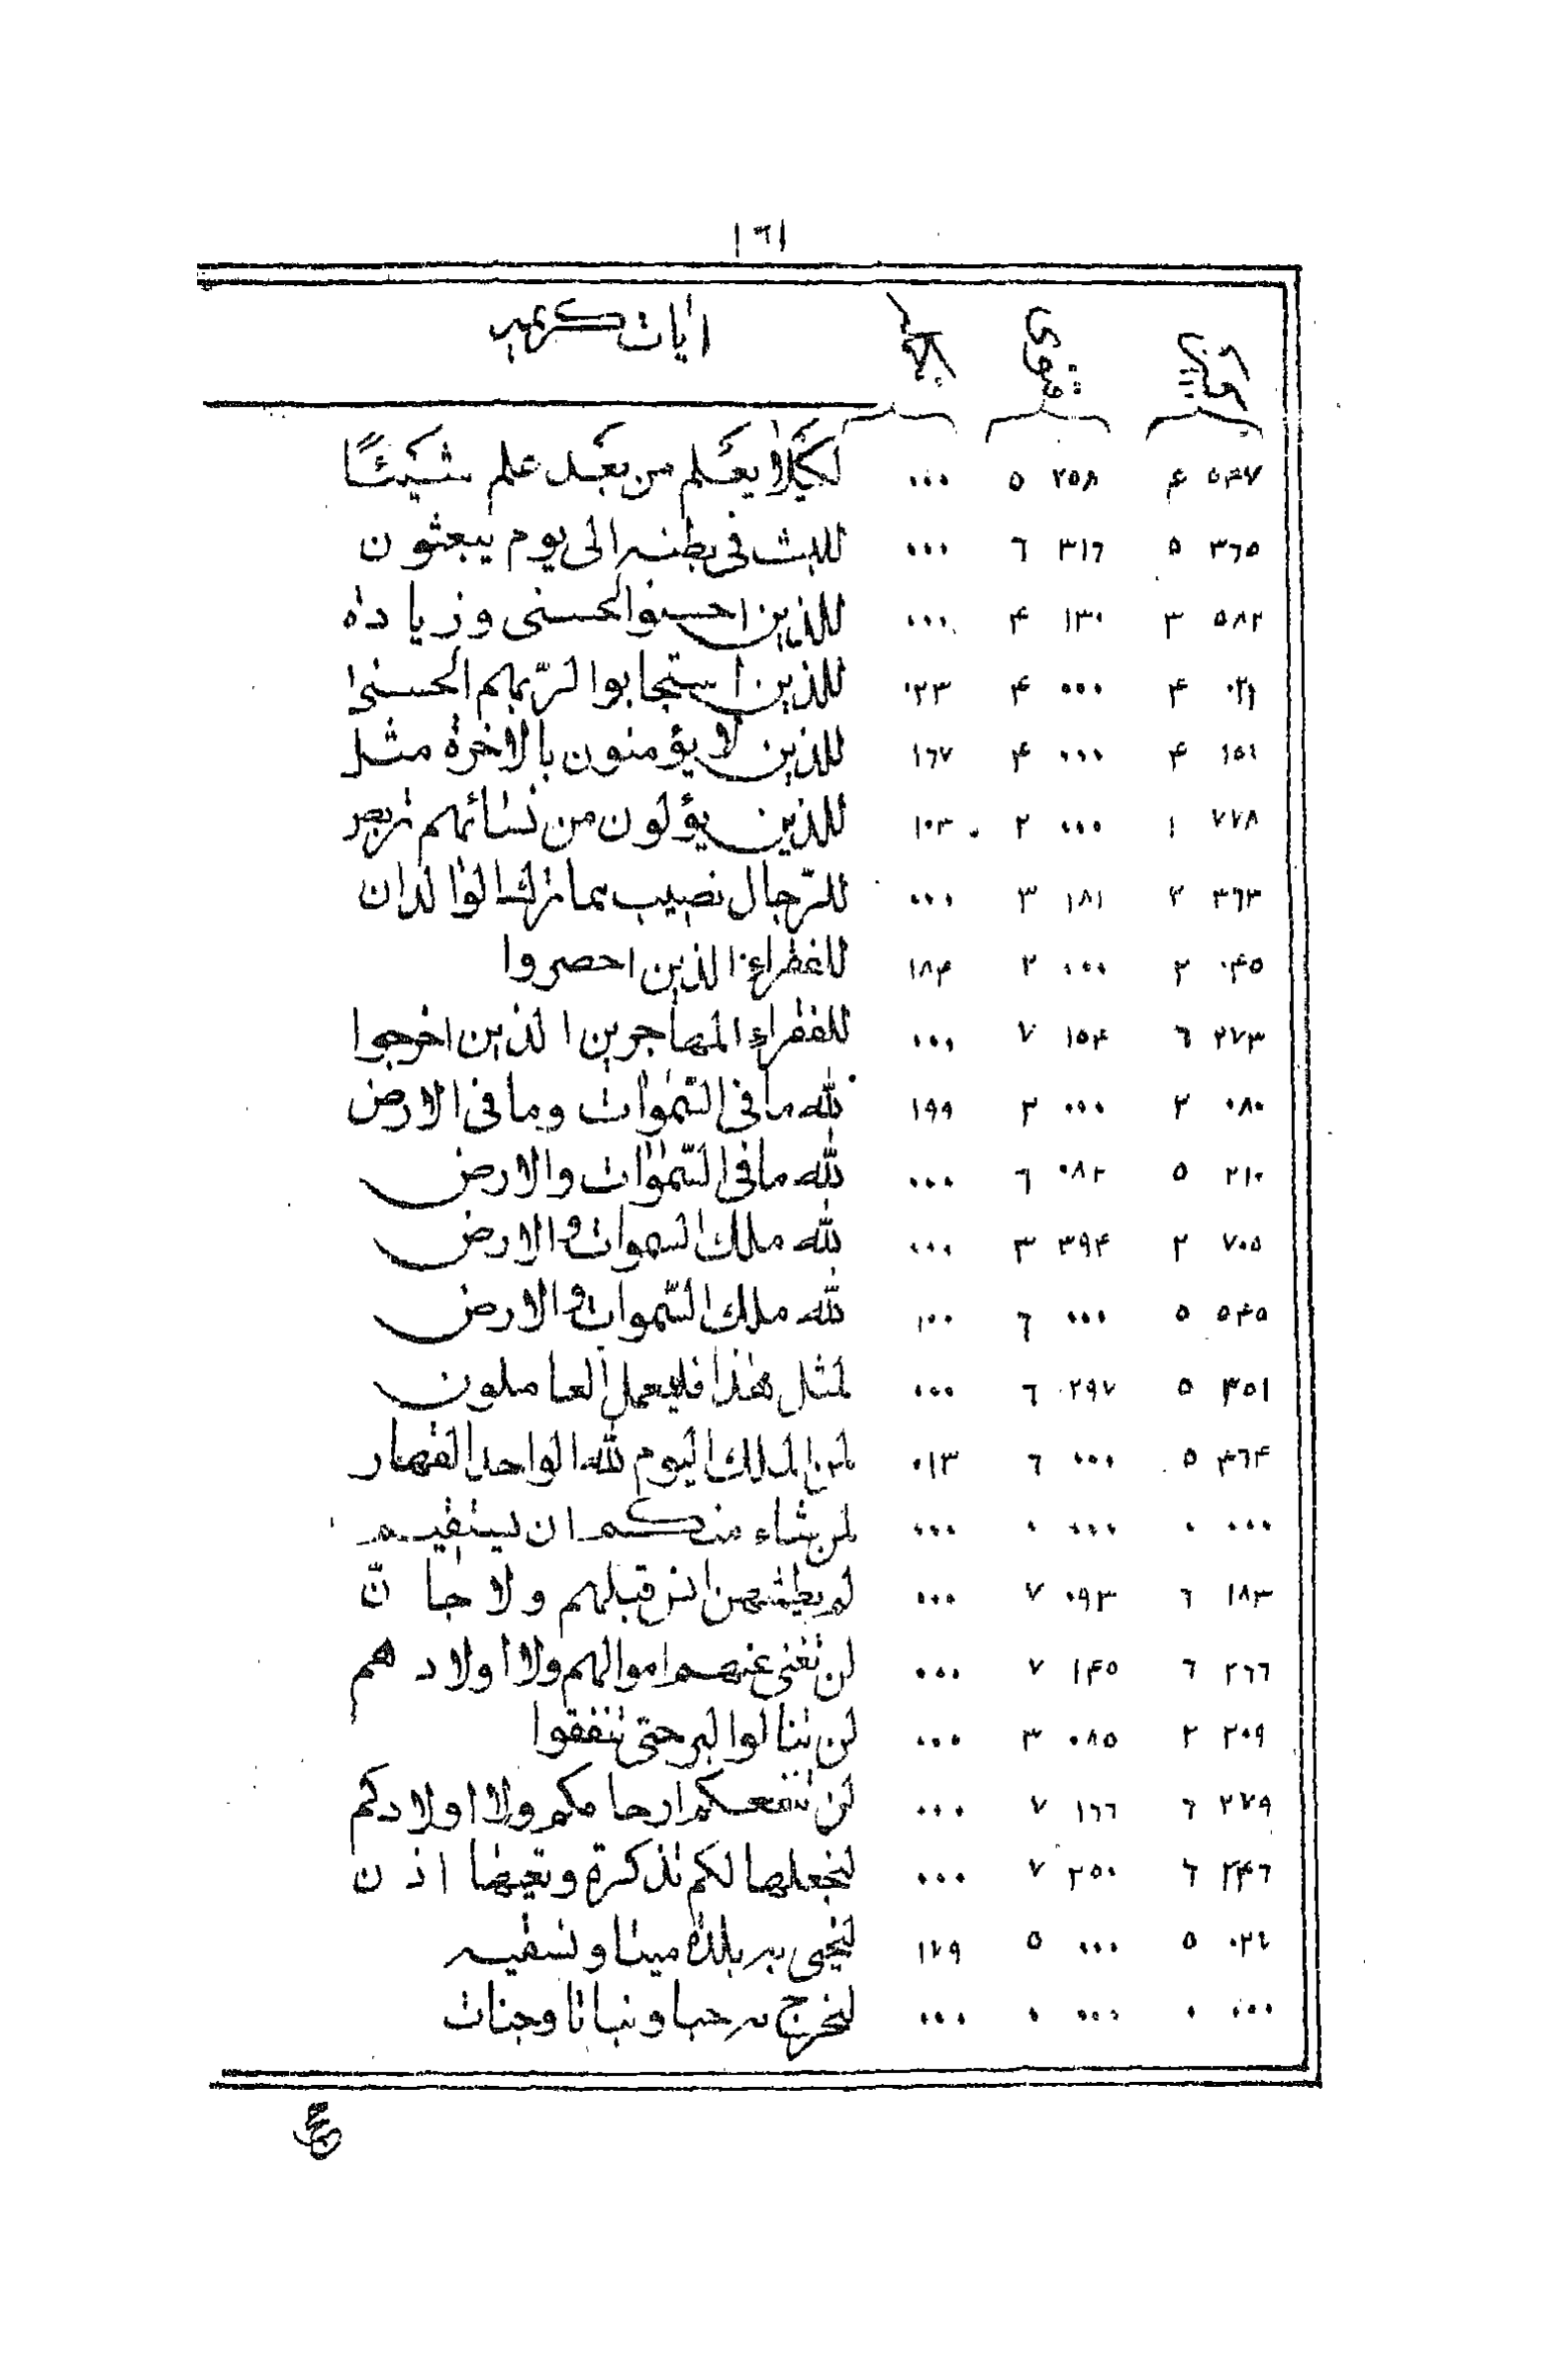 ١٦١
ايات كريمه
٥٤٧ ٤ ٢٥٨ ٥ ٠٠٠ لكيلا يعلم من بعد علم شيئًا
٣٦٥ ٥ ٣١٦ ٦ ٠٠٠ للبث فى بطنه الى يوم يبعثون
٥٨٢ ٣ ١٣٠ ٤ ٠٠٠ للذين احسنوا الحسنى وزياداه
٠٢١ ٤ ٠٠٠ ٤ ٠٢٣ للذين استجابوا لربهم الحسنى
١٥١ ٤ ٠٠٠ ٤ ١٦٧ للذين لا يؤمنون بالاخرة مثل
٧٧٨ ١ ٠٠٠ ٢ ١٠٣ للذين يؤلون من نسائهم تربص
٣٦٣ ٢ ١٨١ ٣ ٠٠٠ للرّجال نصيب مما ترك الوالدان
٠٤٥ ٢ ٠٠٠ ٢ ١٨٤ للفقراء الذين احصروا
٢٧٣ ٦ ١٥٤ ٧ ٠٠٠ للفقراء المهاجرين الذين اخرجوا
٠٨٠ ٢ ٠٠٠ ٣ ١٩٩ لله ما فى السّموات وما فى الارض
٢١٠ ٥ ٠٨٢ ٦ ٠٠٠ لله ما فى السّموات والارض
٧٠٥ ٢ ٣٩٤ ٣ ٠٠٠ لله ملك السموات والارض
٥٤٥ ٥ ٠٠٠ ٦ ١٠٠ لله ملك السّموات والارض
٣٥١ ٥ ٢٩٧ ٦ ٠٠٠ لمثل هذا فليعمل العاملون
٤٦٤ ٥ ٠٠٠ ٦ ٠١٣ لمن الملك اليوم لله الواحد القهار
٠٠٠ ٠ ٠٠٠ ٠ ٠٠٠ لمن شاء منكم ان يستقيم
١٨٣ ٦ ٠٩٣ ٧ ٠٠٠ لم يطمثهن انس قبلهم ولا جانّ
٢٦٦ ٦ ١٤٥ ٧ ٠٠٠ لن تغنى عنهم اموالهم ولا اولادهم
٢٠٩ ٢ ٠٨٥ ٣ ٠٠٠ لن تنالوا البر حتى تنفقوا
٢٧٩ ٦ ١٦٦ ٧ ٠٠٠ لن تنفعكم ارحامكم ولا اولادكم
٣٤٦ ٦ ٢٥٠ ٧ ٠٠٠ لنجعلها لكم تذكرة وتعيها اذن
٠٢٤ ٥ ٠٠٠ ٥ ١٧٩ لنحيى به بلدة ميتا ونسقيه
٠٠٠ ٠ ٠٠٠ ٠ ٠٠٠ لنخرج به حبا ونباتا وجنات